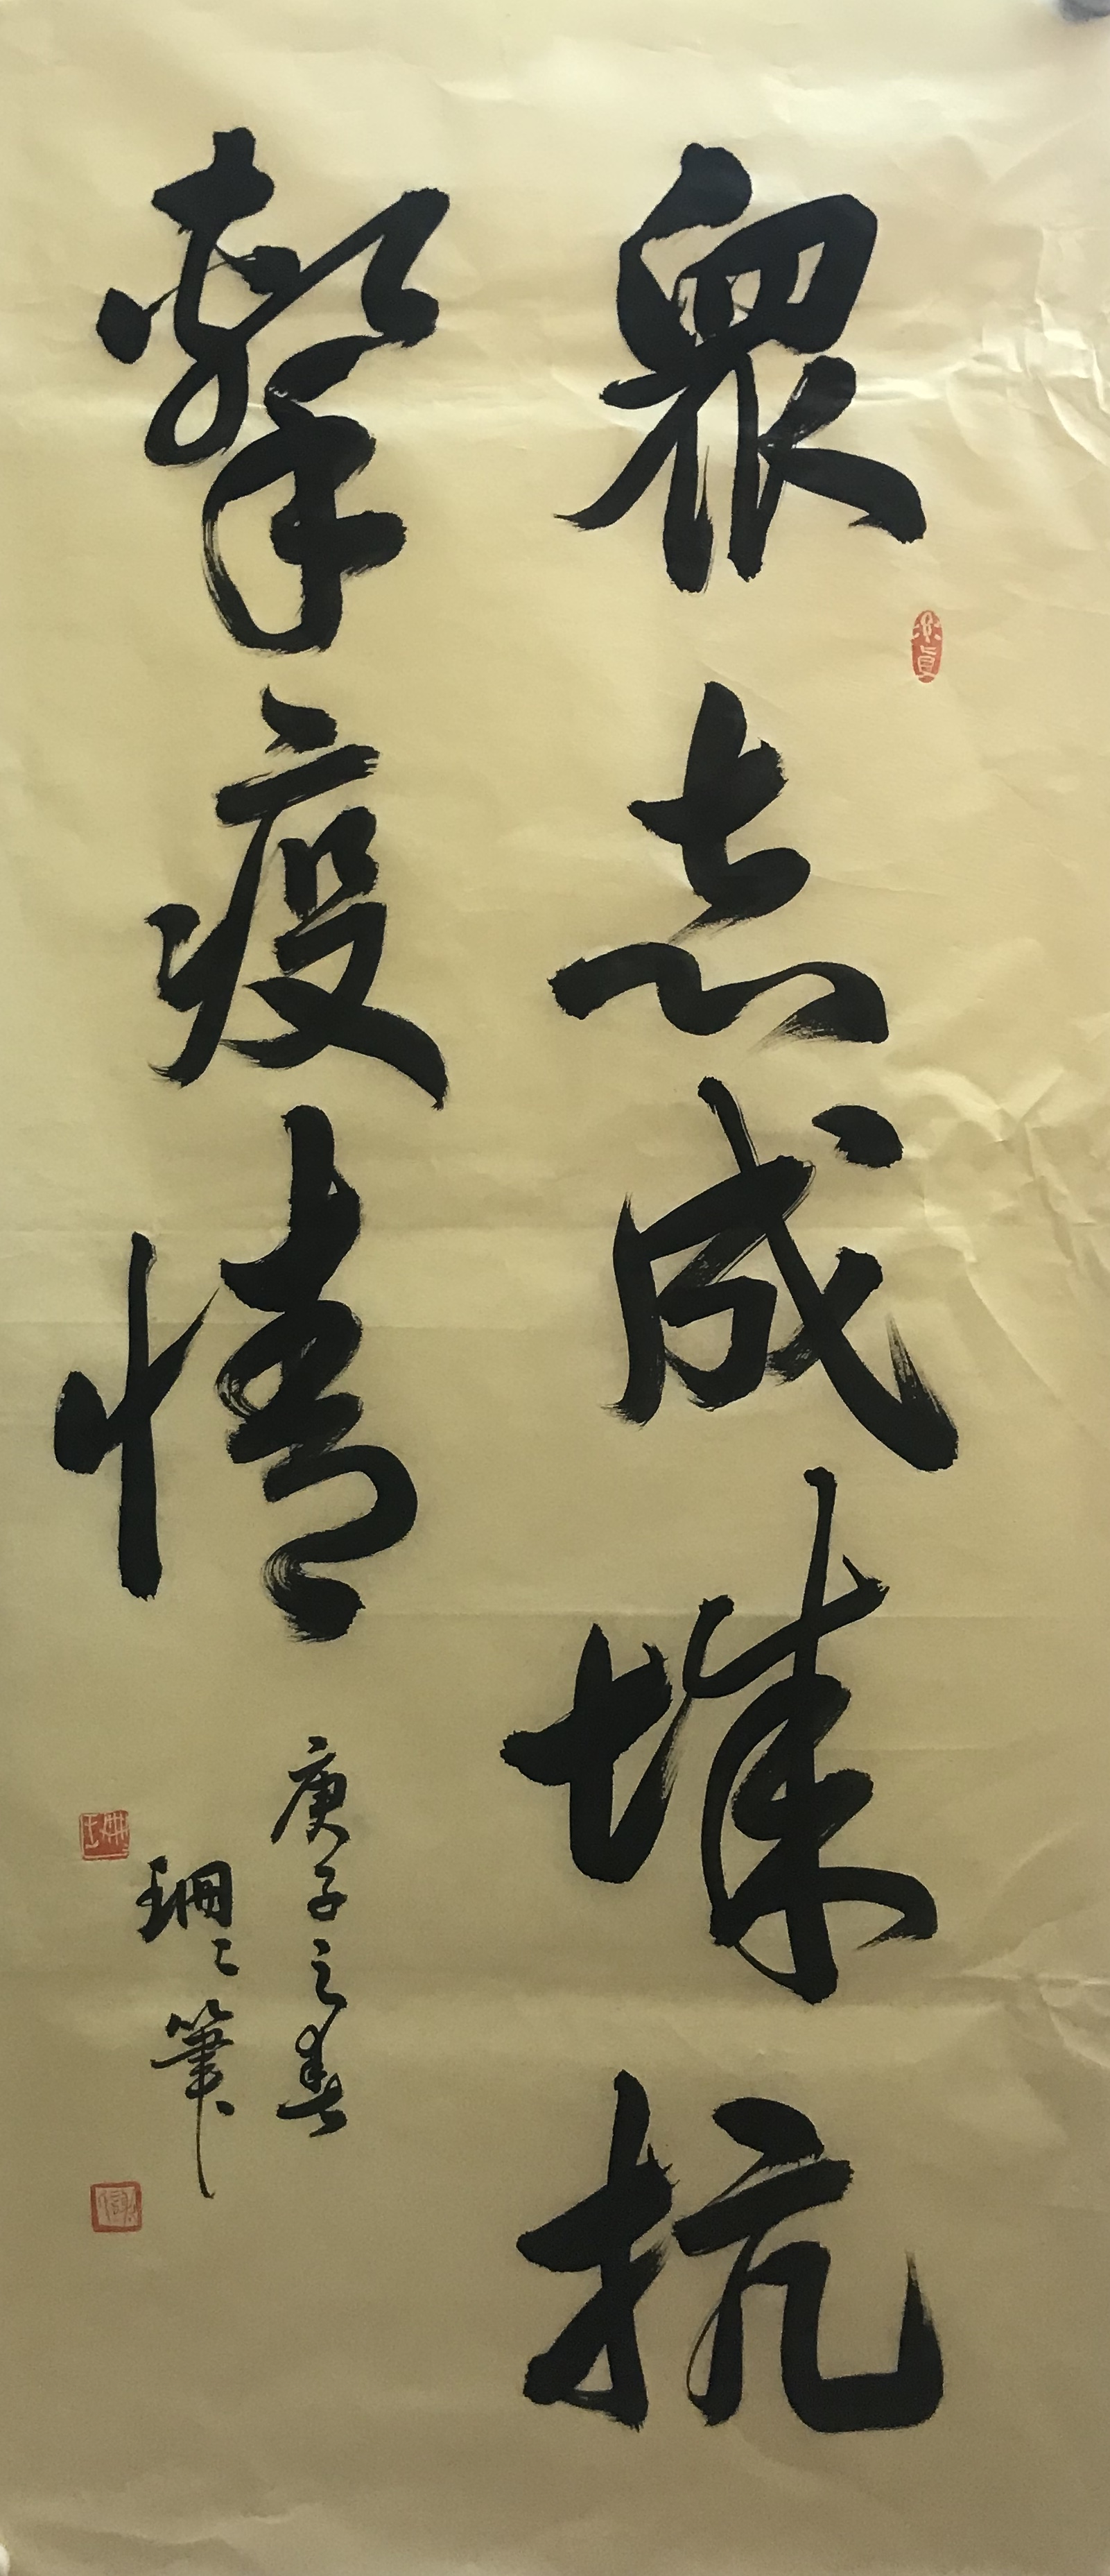 眾志成城抗
擊疫情
庚子之春
珊珊筆